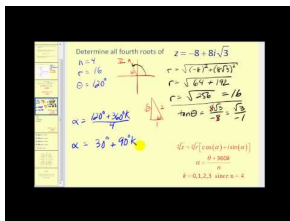 Determine all fourth roots of z = -8 + 8i√3
n = 4
r = 16
θ = 120°
r = √(-8)² + (8√3)²
r = √64 + 192
r = √256 = 16
tanθ = 8√3/-8 = √3/-1
α = 120° + 360°k/4
α = 30° + 90°k
ⁿ√z = ⁿ√r[cos(α) + i sin(α)]
α = θ + 360k/n
k = 0,1,2,3 since n = 4